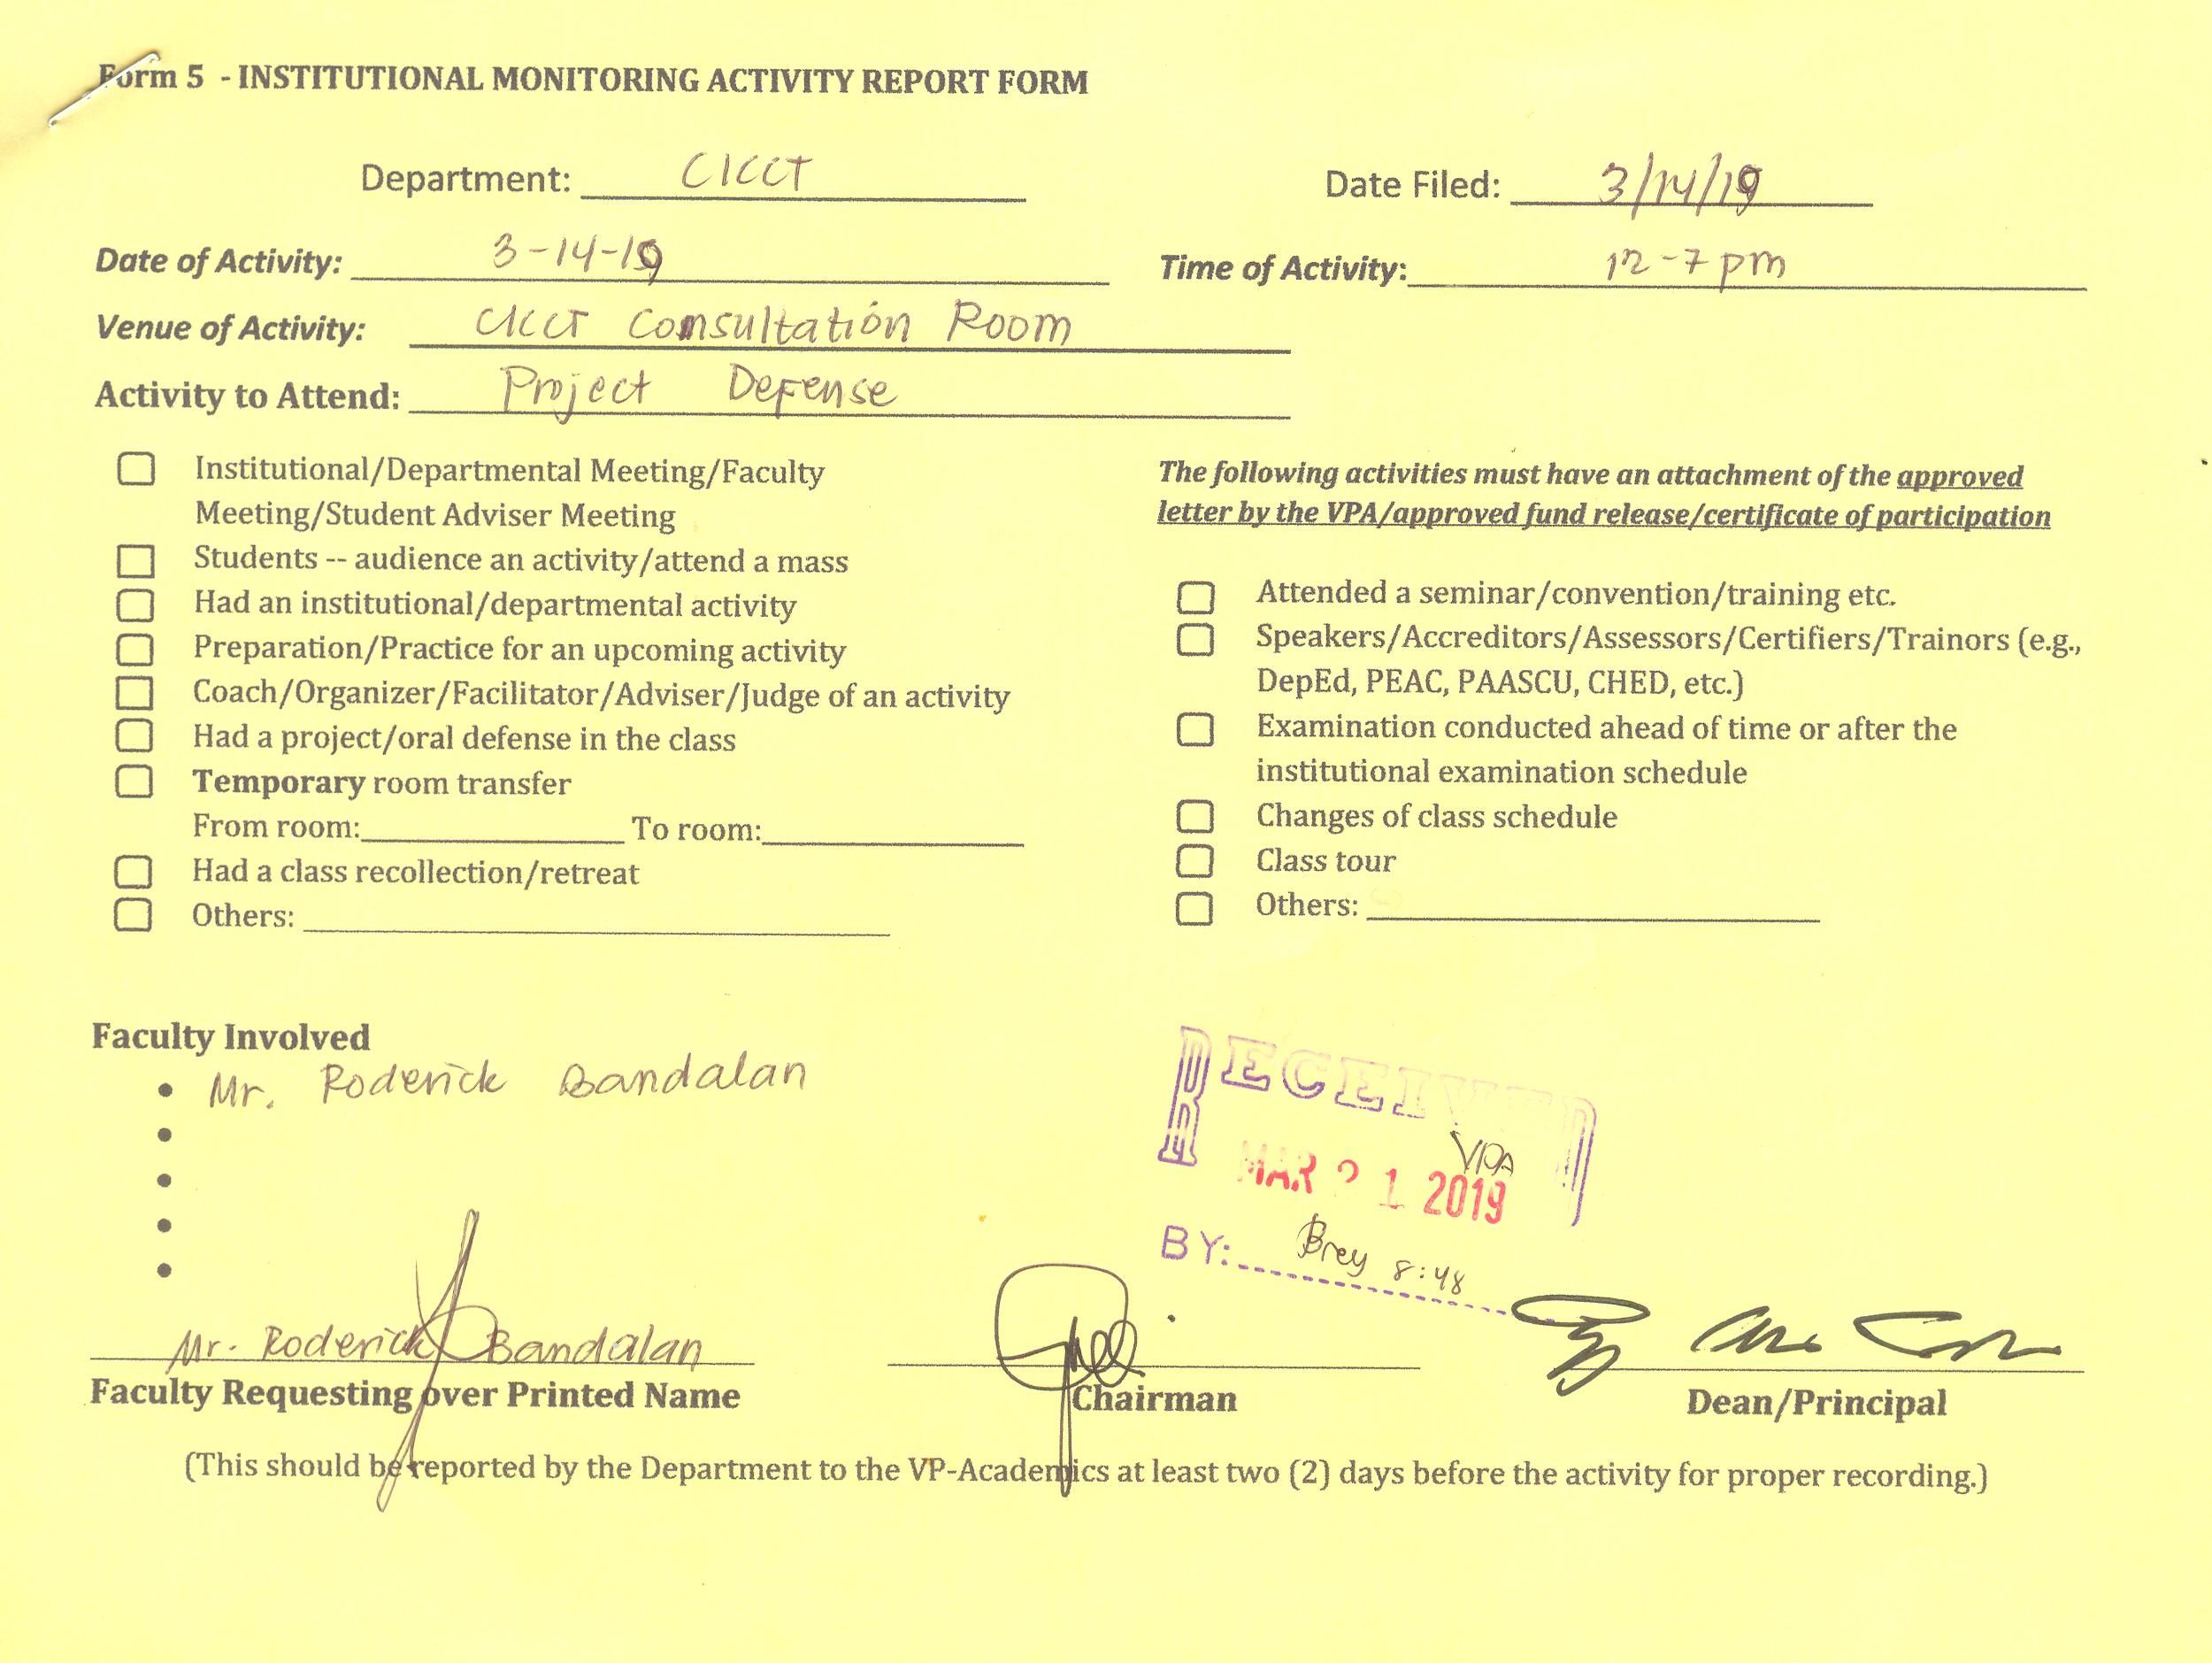 Form 5 - INSTITUTIONAL MONITORING ACTIVITY REPORT FORM
Department: CICCT
Date Filed: 3/14/19
Date of Activity: 3-14-19
Time of Activity: 12-7 pm
Venue of Activity: CICCT Consultation Room
Activity to Attend: Project Defense
Institutional/Departmental Meeting/Faculty
Meeting/Student Adviser Meeting
Students -- audience an activity/attend a mass
Had an institutional/departmental activity
Preparation/Practice for an upcoming activity
Coach/Organizer/Facilitator/Adviser/Judge of an activity
Had a project/oral defense in the class
Temporary room transfer
From room: To room:
Had a class recollection/retreat
Others:
The following activities must have an attachment of the approved
letter by the VPA/approved fund release/certificate of participation
Attended a seminar/convention/training etc.
Speakers/Accreditors/Assessors/Certifiers/Trainors (e.g.,
DepEd, PEAC, PAASCU, CHED, etc.)
Examination conducted ahead of time or after the
institutional examination schedule
Changes of class schedule
Class tour
Others:
Faculty Involved
• Mr. Roderick Bandalan
•
•
•
•
RECEIVED
VPA
MAR 21 2019
BY: Brey 8:48
Mr. Roderick Bandalan
Faculty Requesting over Printed Name
Chairman
Dean/Principal
(This should be reported by the Department to the VP-Academics at least two (2) days before the activity for proper recording.)